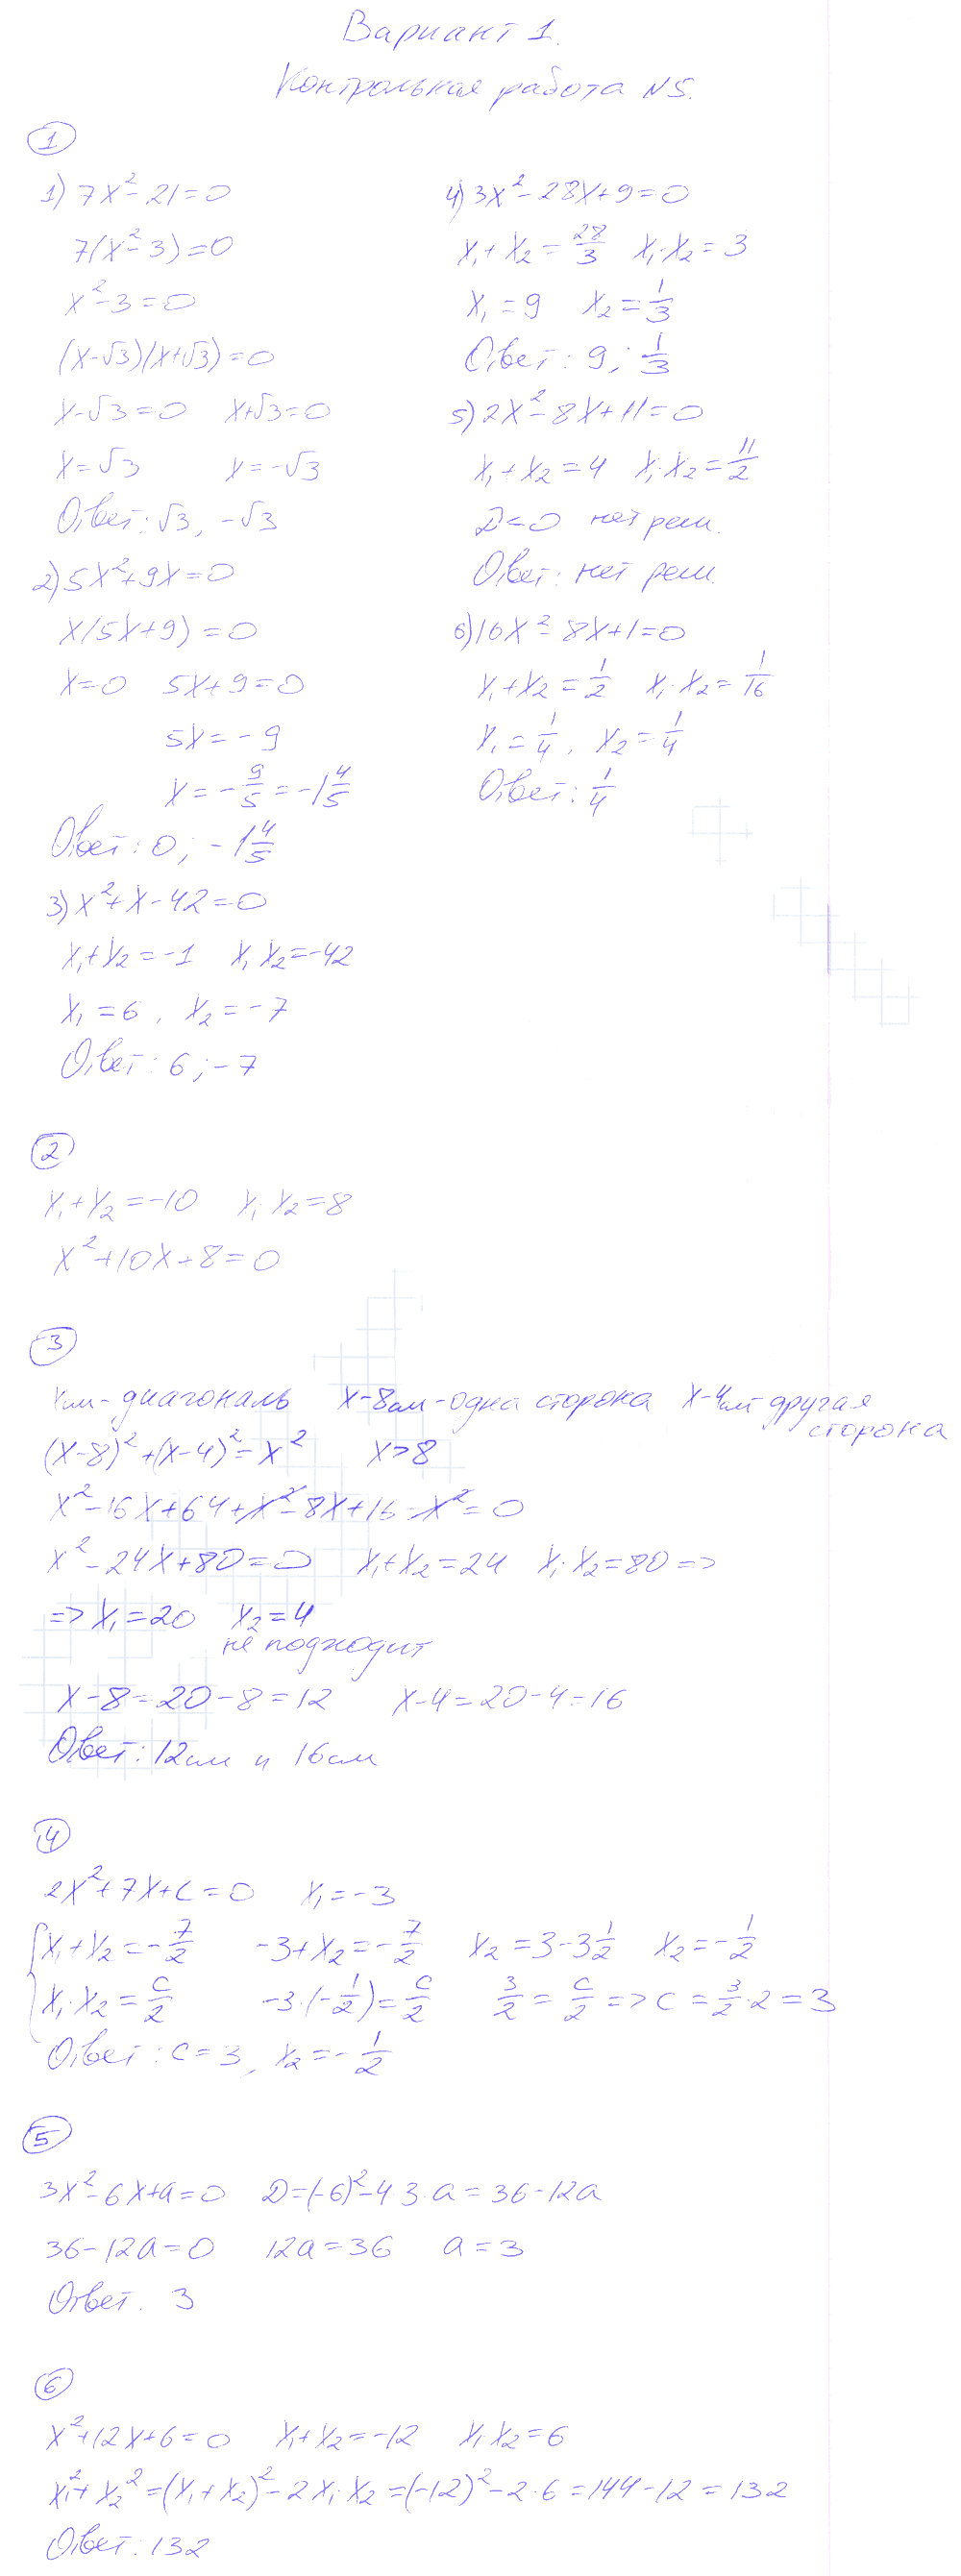 Вариант 1.
Контрольная работа N5.
1
1) 7x² - 21 = 0
7(x² - 3) = 0
x² - 3 = 0
(x - √3)(x + √3) = 0
x - √3 = 0 x + √3 = 0
x = √3 x = -√3
Ответ: √3, -√3
2) 5x² + 9x = 0
x(5x + 9) = 0
x = 0 5x + 9 = 0
5x = -9
x = -9/5 = -1 4/5
Ответ: 0; -1 4/5
3) x² + x - 42 = 0
x₁ + x₂ = -1 x₁ x₂ = -42
x₁ = 6, x₂ = -7
Ответ: 6; -7
4) 3x² - 28x + 9 = 0
x₁ + x₂ = 28/3 x₁·x₂ = 3
x₁ = 9 x₂ = 1/3
Ответ: 9; 1/3
5) 2x² - 8x + 11 = 0
x₁ + x₂ = 4 x₁·x₂ = 11/2
D < 0 нет реш.
Ответ: нет реш.
6) 16x² - 8x + 1 = 0
x₁ + x₂ = 1/2 x₁·x₂ = 1/16
x₁ = 1/4, x₂ = 1/4
Ответ: 1/4
2
x₁ + x₂ = -10 x₁·x₂ = 8
x² + 10x + 8 = 0
3
x см - диагональ x - 8 см - одна сторона x - 4 см - другая
сторона
(x - 8)² + (x - 4)² = x² x > 8
x² - 16x + 64 + x² - 8x + 16 - x² = 0
x² - 24x + 80 = 0 x₁ + x₂ = 24 x₁·x₂ = 80 =>
=> x₁ = 20 x₂ = 4
не подходит
x - 8 = 20 - 8 = 12 x - 4 = 20 - 4 = 16
Ответ: 12 см и 16 см
4
2x² + 7x + c = 0 x₁ = -3
{ x₁ + x₂ = -7/2 -3 + x₂ = -7/2 x₂ = 3 - 3 1/2 x₂ = -1/2
x₁·x₂ = c/2 -3·(-1/2) = c/2 3/2 = c/2 => c = 3/2·2 = 3
Ответ: c = 3, x₂ = -1/2
5
3x² - 6x + a = 0 D = (-6)² - 4·3·a = 36 - 12a
36 - 12a = 0 12a = 36 a = 3
Ответ: 3
6
x² + 12x + 6 = 0 x₁ + x₂ = -12 x₁·x₂ = 6
x₁² + x₂² = (x₁ + x₂)² - 2x₁·x₂ = (-12)² - 2·6 = 144 - 12 = 132
Ответ: 132